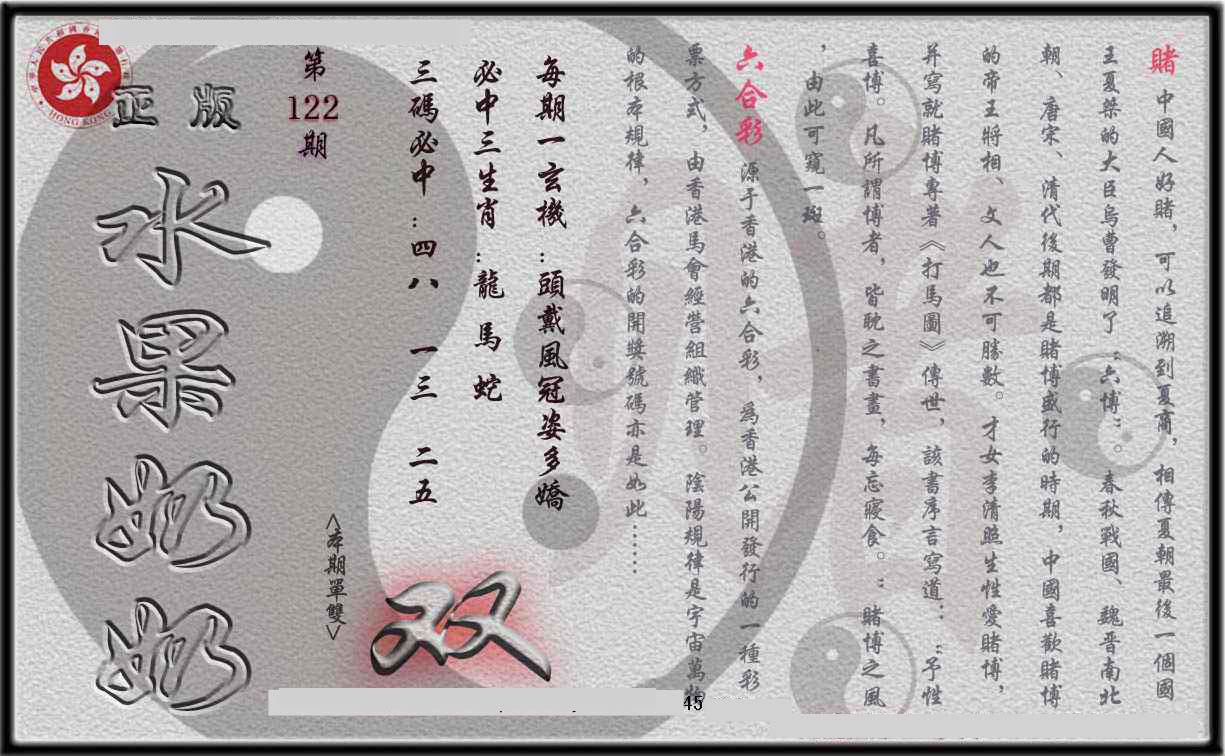 賭 中國人好賭，可以追溯到夏商，相傳夏朝最後一個國
王夏桀的大臣烏曹發明了“六博”。春秋戰國、魏晋南北
朝、唐宋、清代後期都是賭博盛行的時期，中國喜歡賭博
的帝王將相、文人也不可勝數。才女李清照生性愛賭博，
并寫就賭博專著《打馬圖》傳世，該書序言寫道：“予性
喜博。凡所謂博者，皆耽之書晝，每忘寢食。”賭博之風
，由此可窺一斑。
六合彩 源于香港的六合彩，爲香港公開發行的一種彩
票方式，由香港馬會經營組織管理。陰陽規律是宇宙萬物
的根本規律，六合彩的開獎號碼亦是如此……
每期一玄機：頭戴風冠姿多嬌
必中三生肖：龍 馬 蛇
三碼必中：四八 一三 二五
第122期
<本期單雙>
双
正版
水果奶奶
HONG KONG
45